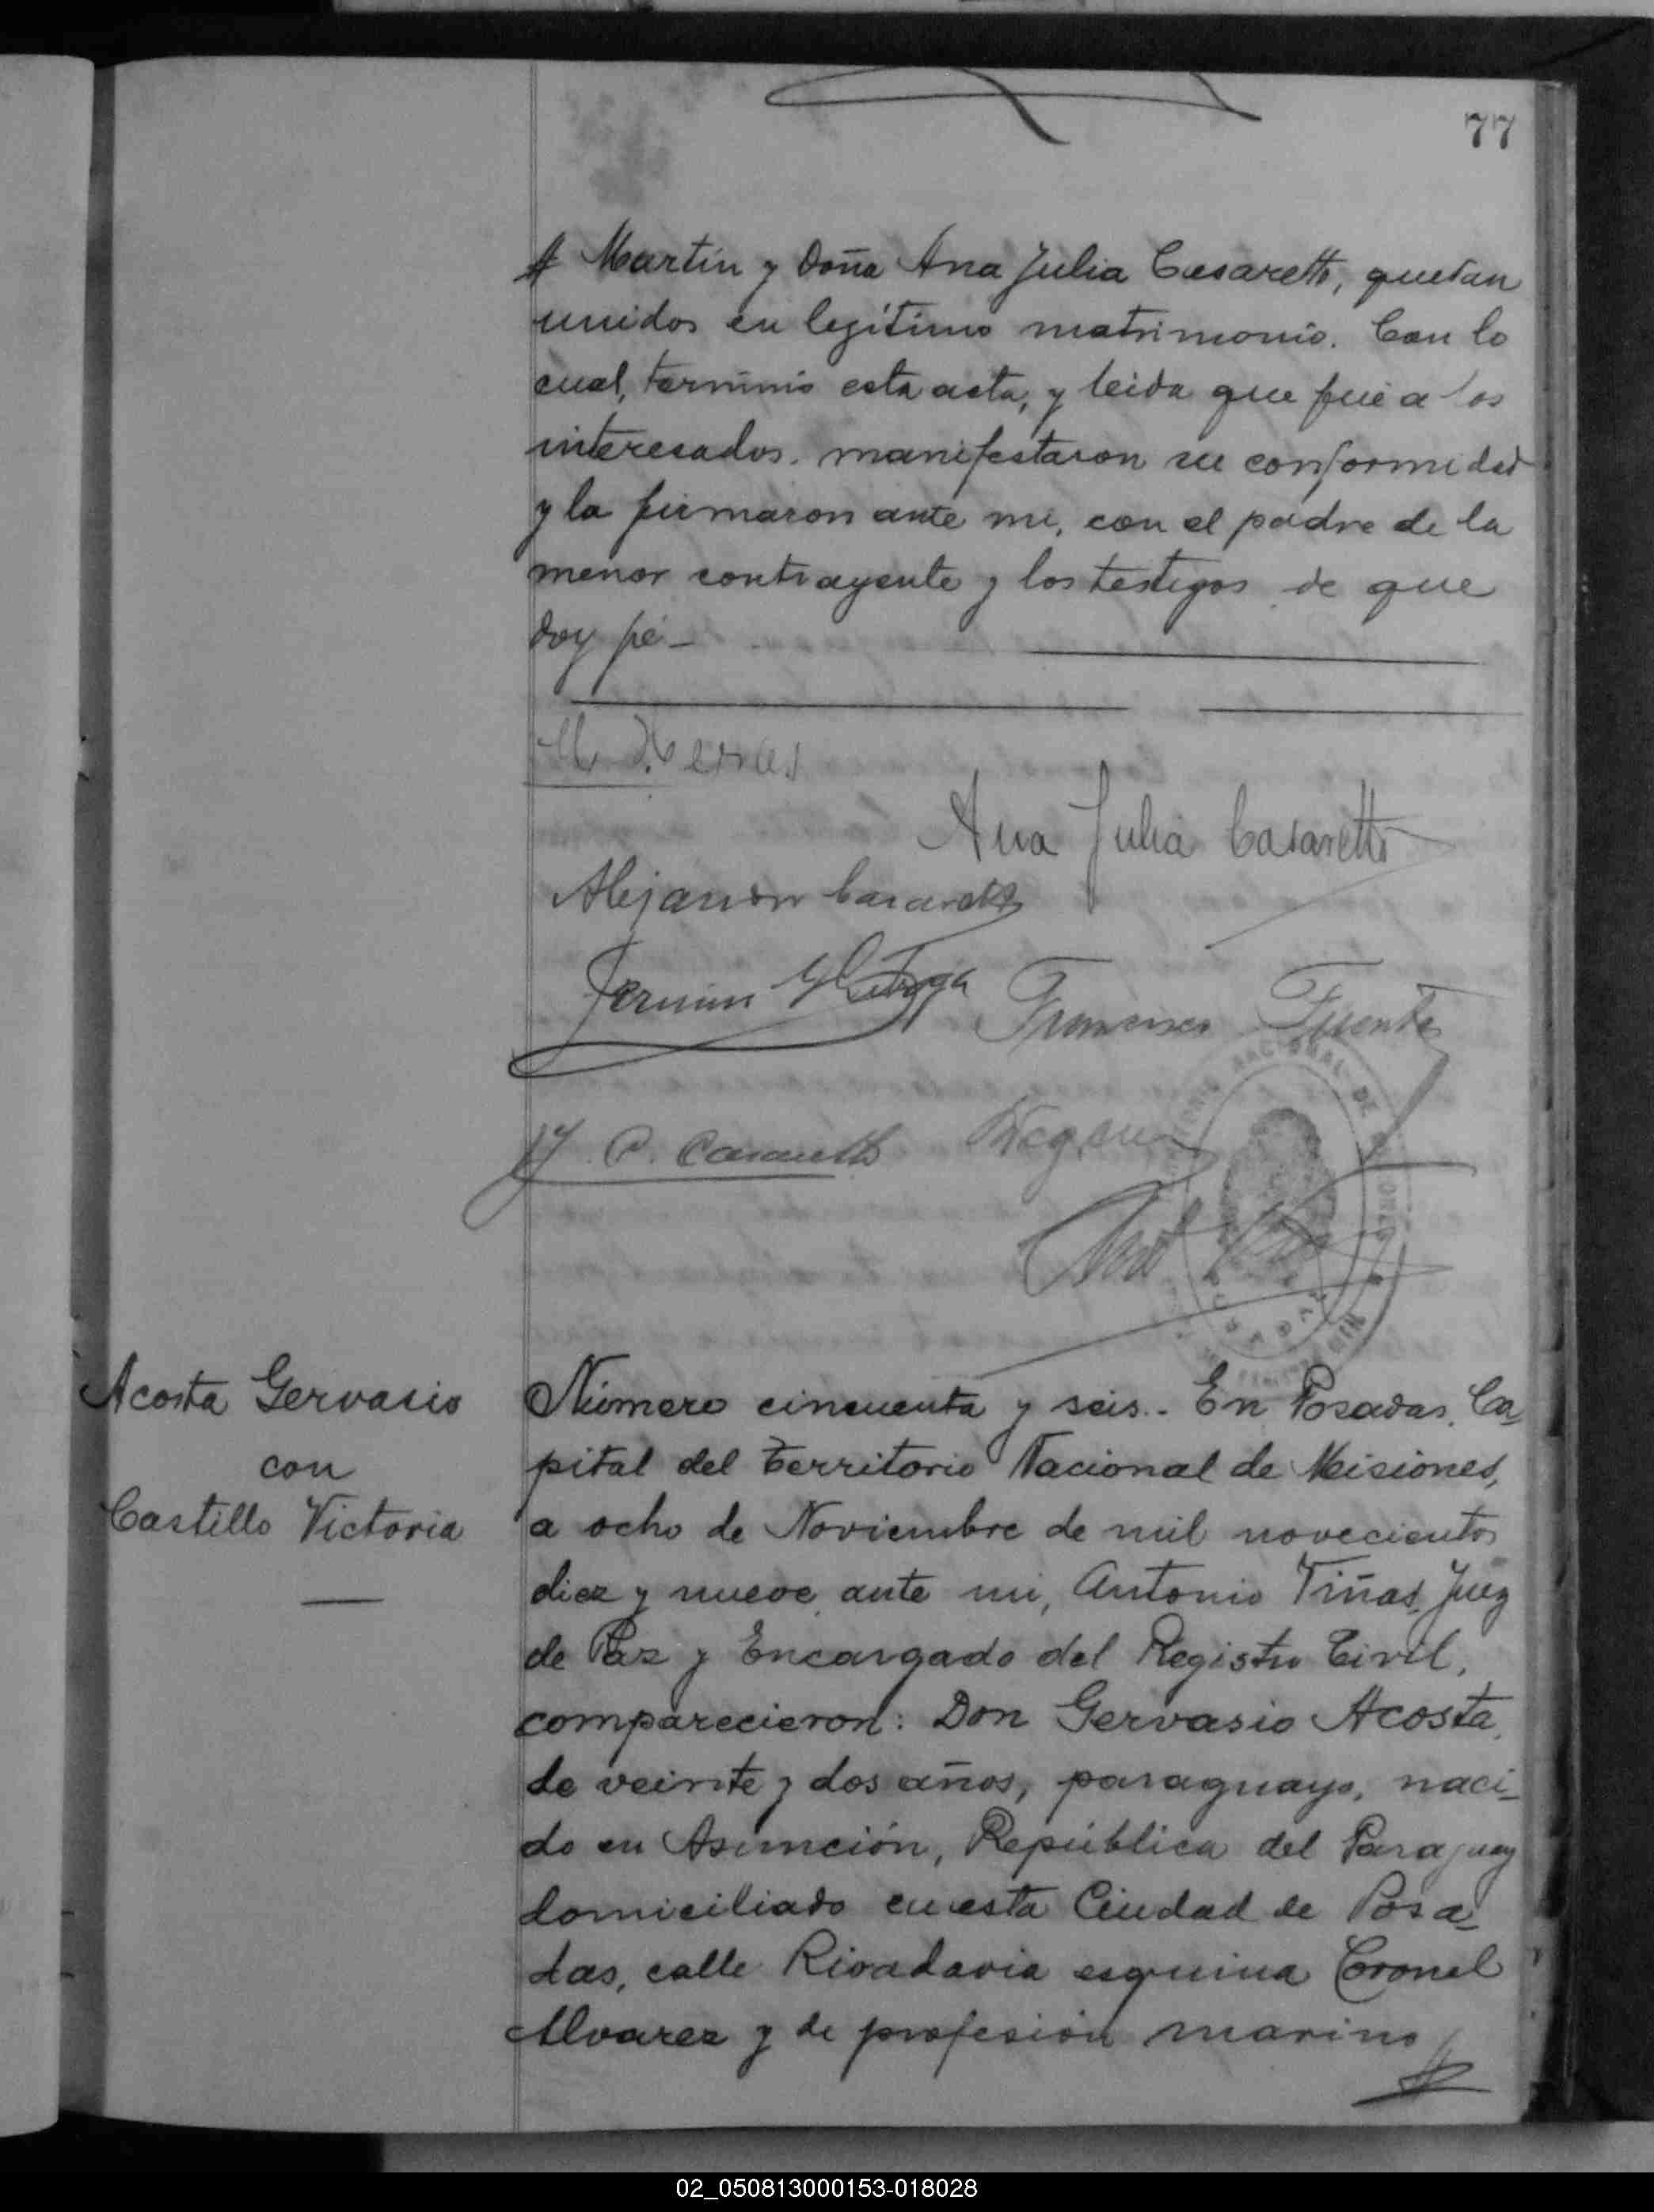 77
Martín y Doña Ana Julia Casaretto, quedan
unidos en legítimo matrimonio. Con lo
cual, terminó esta acta, y leida que fué a los
interesados, manifestaron su conformidad
y la firmaron ante mi, con el padre de la
menor contrayente y los testigos de que
doy fé-
Ana Julia Casaretto
Alejandro Casaretto
Fermin
Francisco Fuentes
P. Casaretto
NACIONAL DE
Acosta Gervasio
con
Castillo Victoria
Número cincuenta y seis.- En Posadas, Ca-
pital del territorio Nacional de Misiones,
a ocho de Noviembre de mil novecientos
diez y nueve, ante mi, Antonio Tiñas, Juez
de Paz y Encargado del Registro Civil,
comparecieron: Don Gervasio Acosta,
de veinte y dos años, paraguayo, naci-
do en Asunción, República del Paraguay
domiciliado en esta Ciudad de Posa-
das, calle Rivadavia esquina Coronel
Alvarez y de profesión marino
02_050813000153-018028